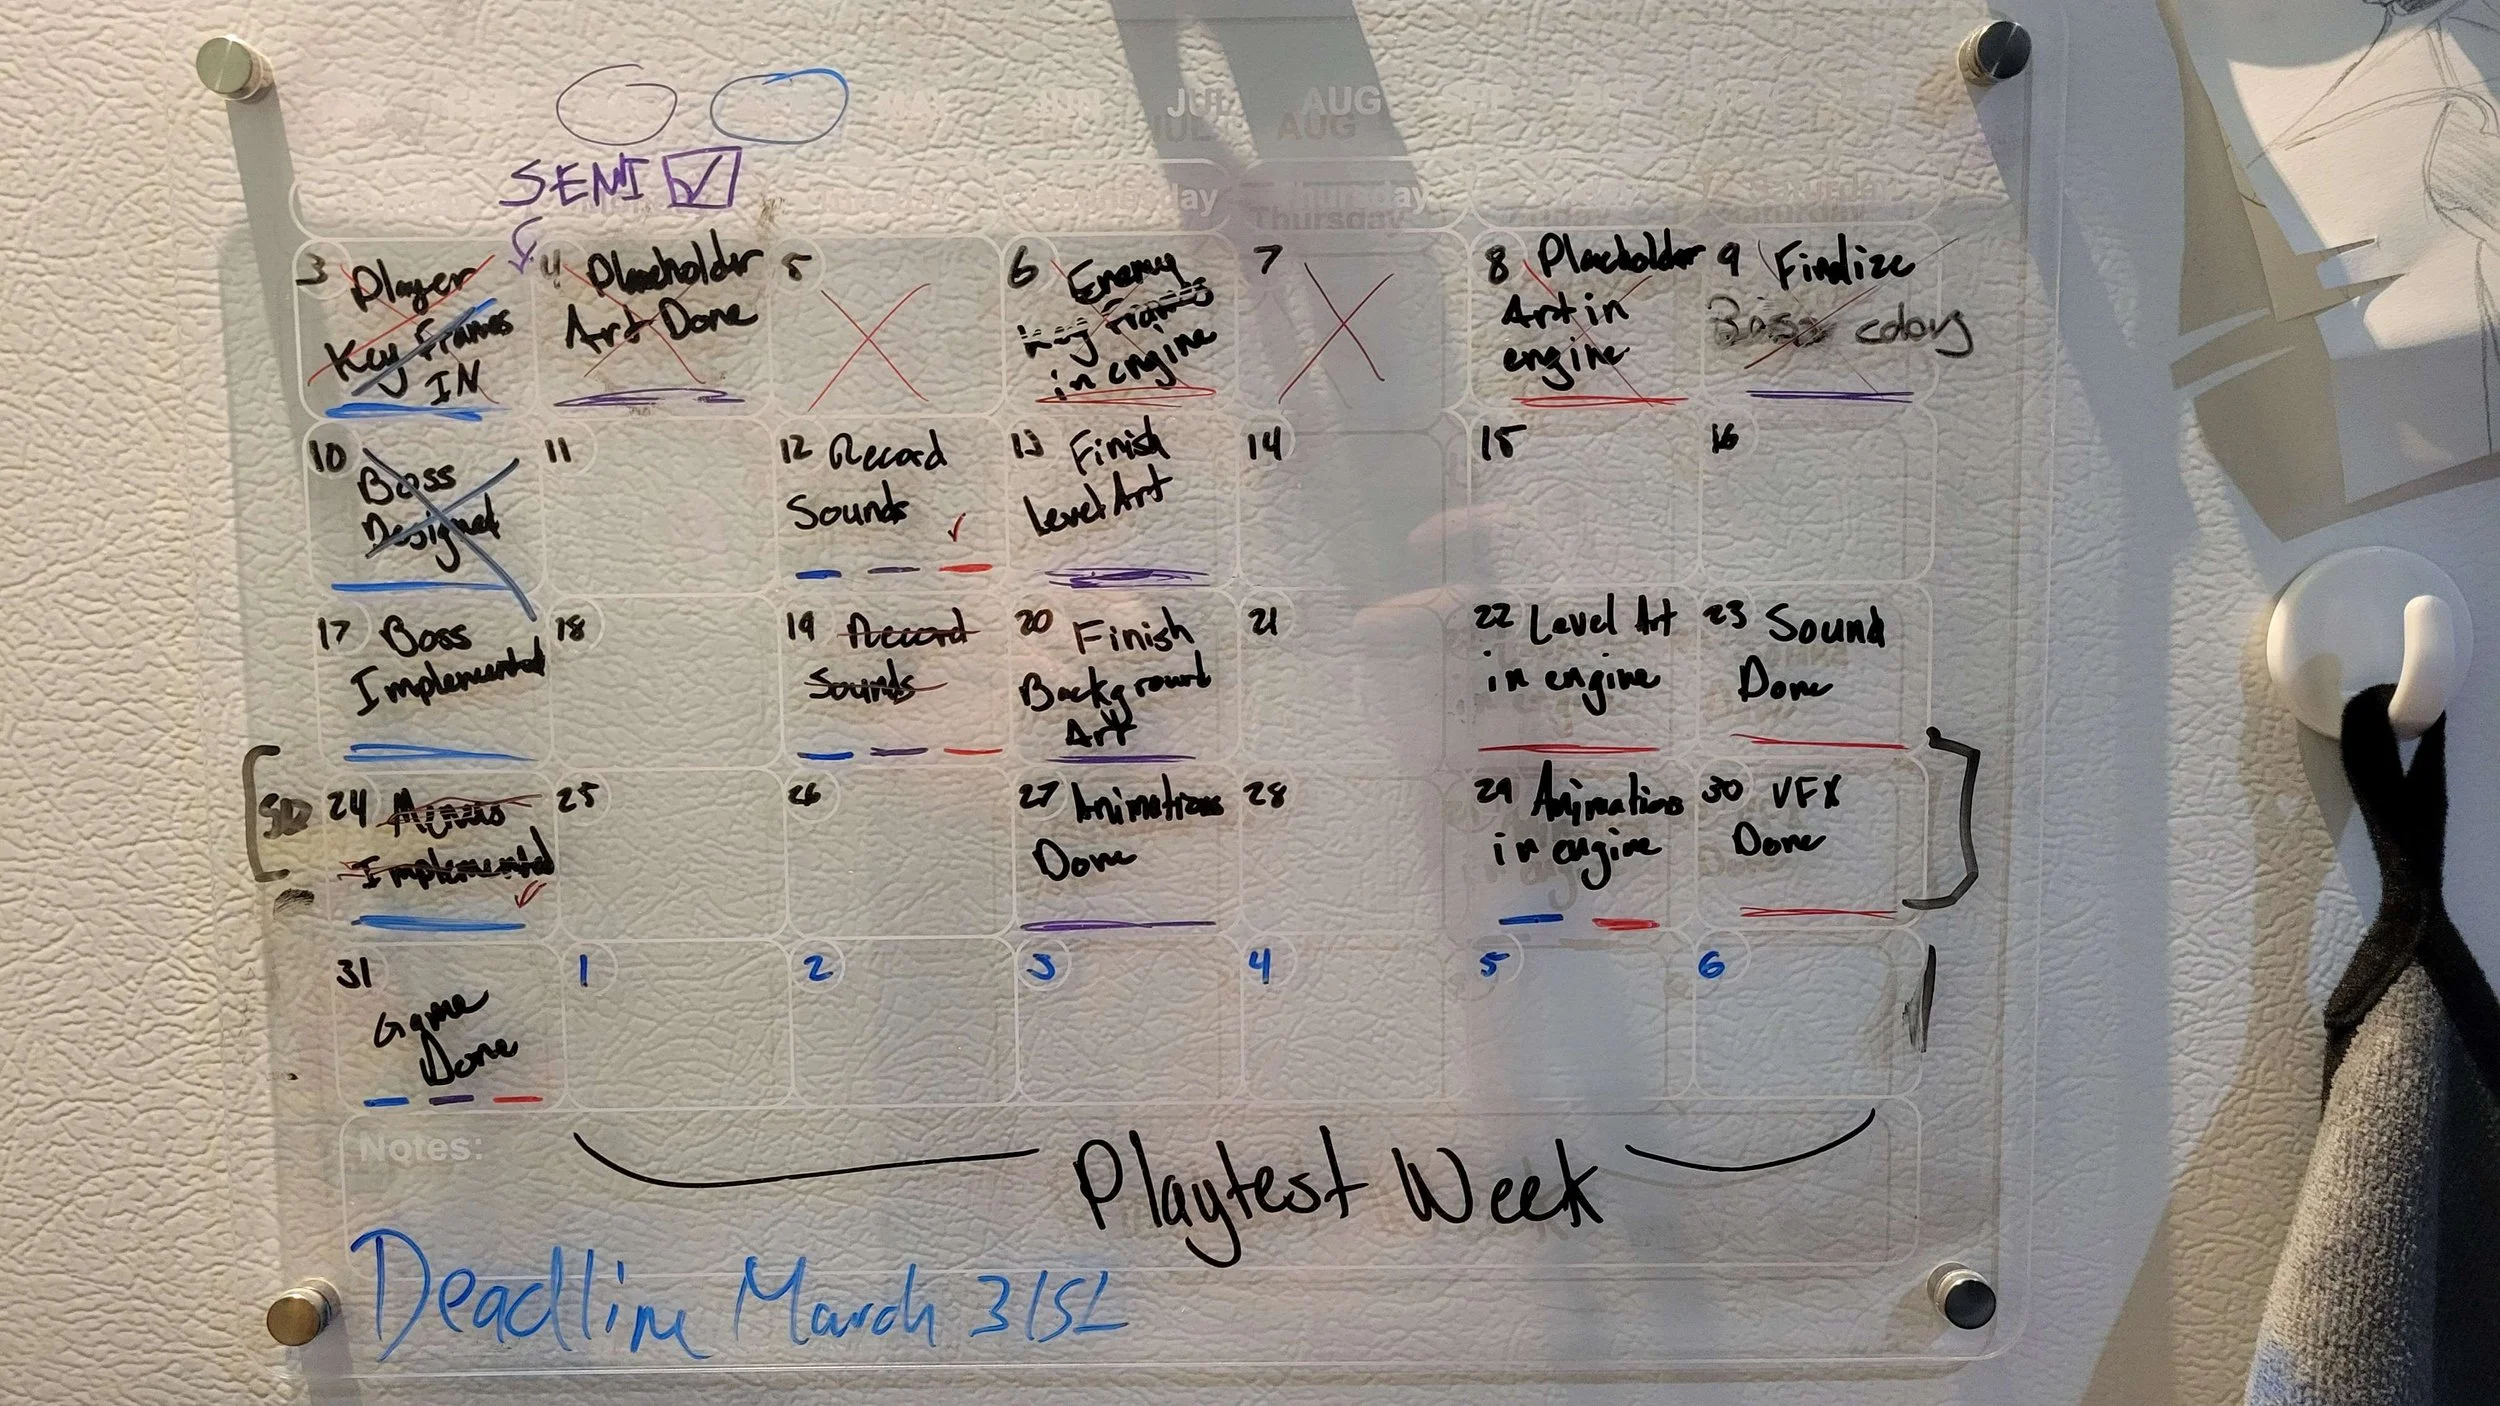 JUL
AUG
SEMI
Thursday
Saturday
3 Player
Key Frames
IN
4 Placeholder
Art Done
5
6 Enemy
Key Frames
in engine
7
8 Placeholder
Art in
engine
9 Finalize
Boss colors
10 Boss
Designed
11
12 Record
Sounds
13 Finish
Level Art
14
15
16
17 Boss
Implemented
18
19 Record
Sounds
20 Finish
Background
Art
21
22 Level Art
in engine
23 Sound
Done
24 Menus
Implemented
25
26
27 Animations
Done
28
29 Animations
in engine
30 VFX
Done
31
Game
Done
1
2
3
4
5
6
Notes:
Playtest Week
Deadline March 31st